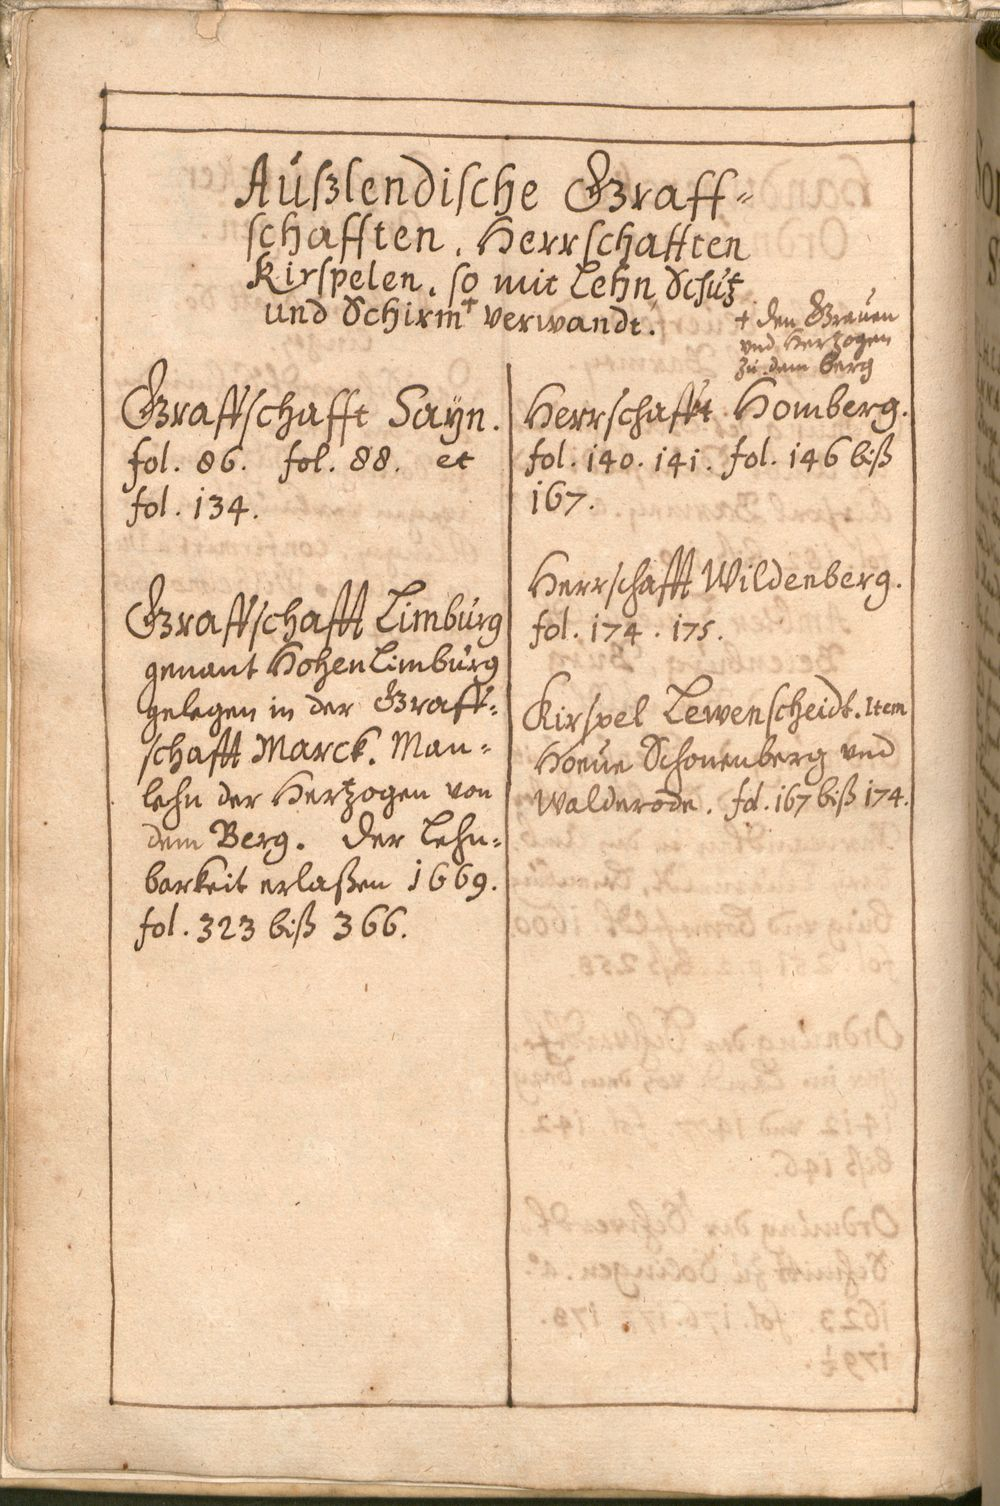 Außlendische Graff=
schafften, Herrschafften
Kirspelen, so mit Lehn, Schutz
und Schirm + verwandt.
+ den Grauen
vnd Hertzogen
zu dem Berg
Graffschafft Sayn.
fol. 86. fol. 88. et
fol. 134.
Graffschafft Limburg
genant Hohenlimburg
gelegen in der Graff=
schafft Marck. Man=
lehn der Hertzogen von
dem Berg. der Lehn=
barkeit erlaßen 1669.
fol. 323 biß 366.
Herrschafft Homberg.
fol. 140. 141. fol. 146 biß
167.
Herrschafft Wildenberg.
fol. 174. 175.
Kirspel Lewenscheidt. Item
Hoeue Schonenberg vnd
Walderode. fol. 167 biß 174.